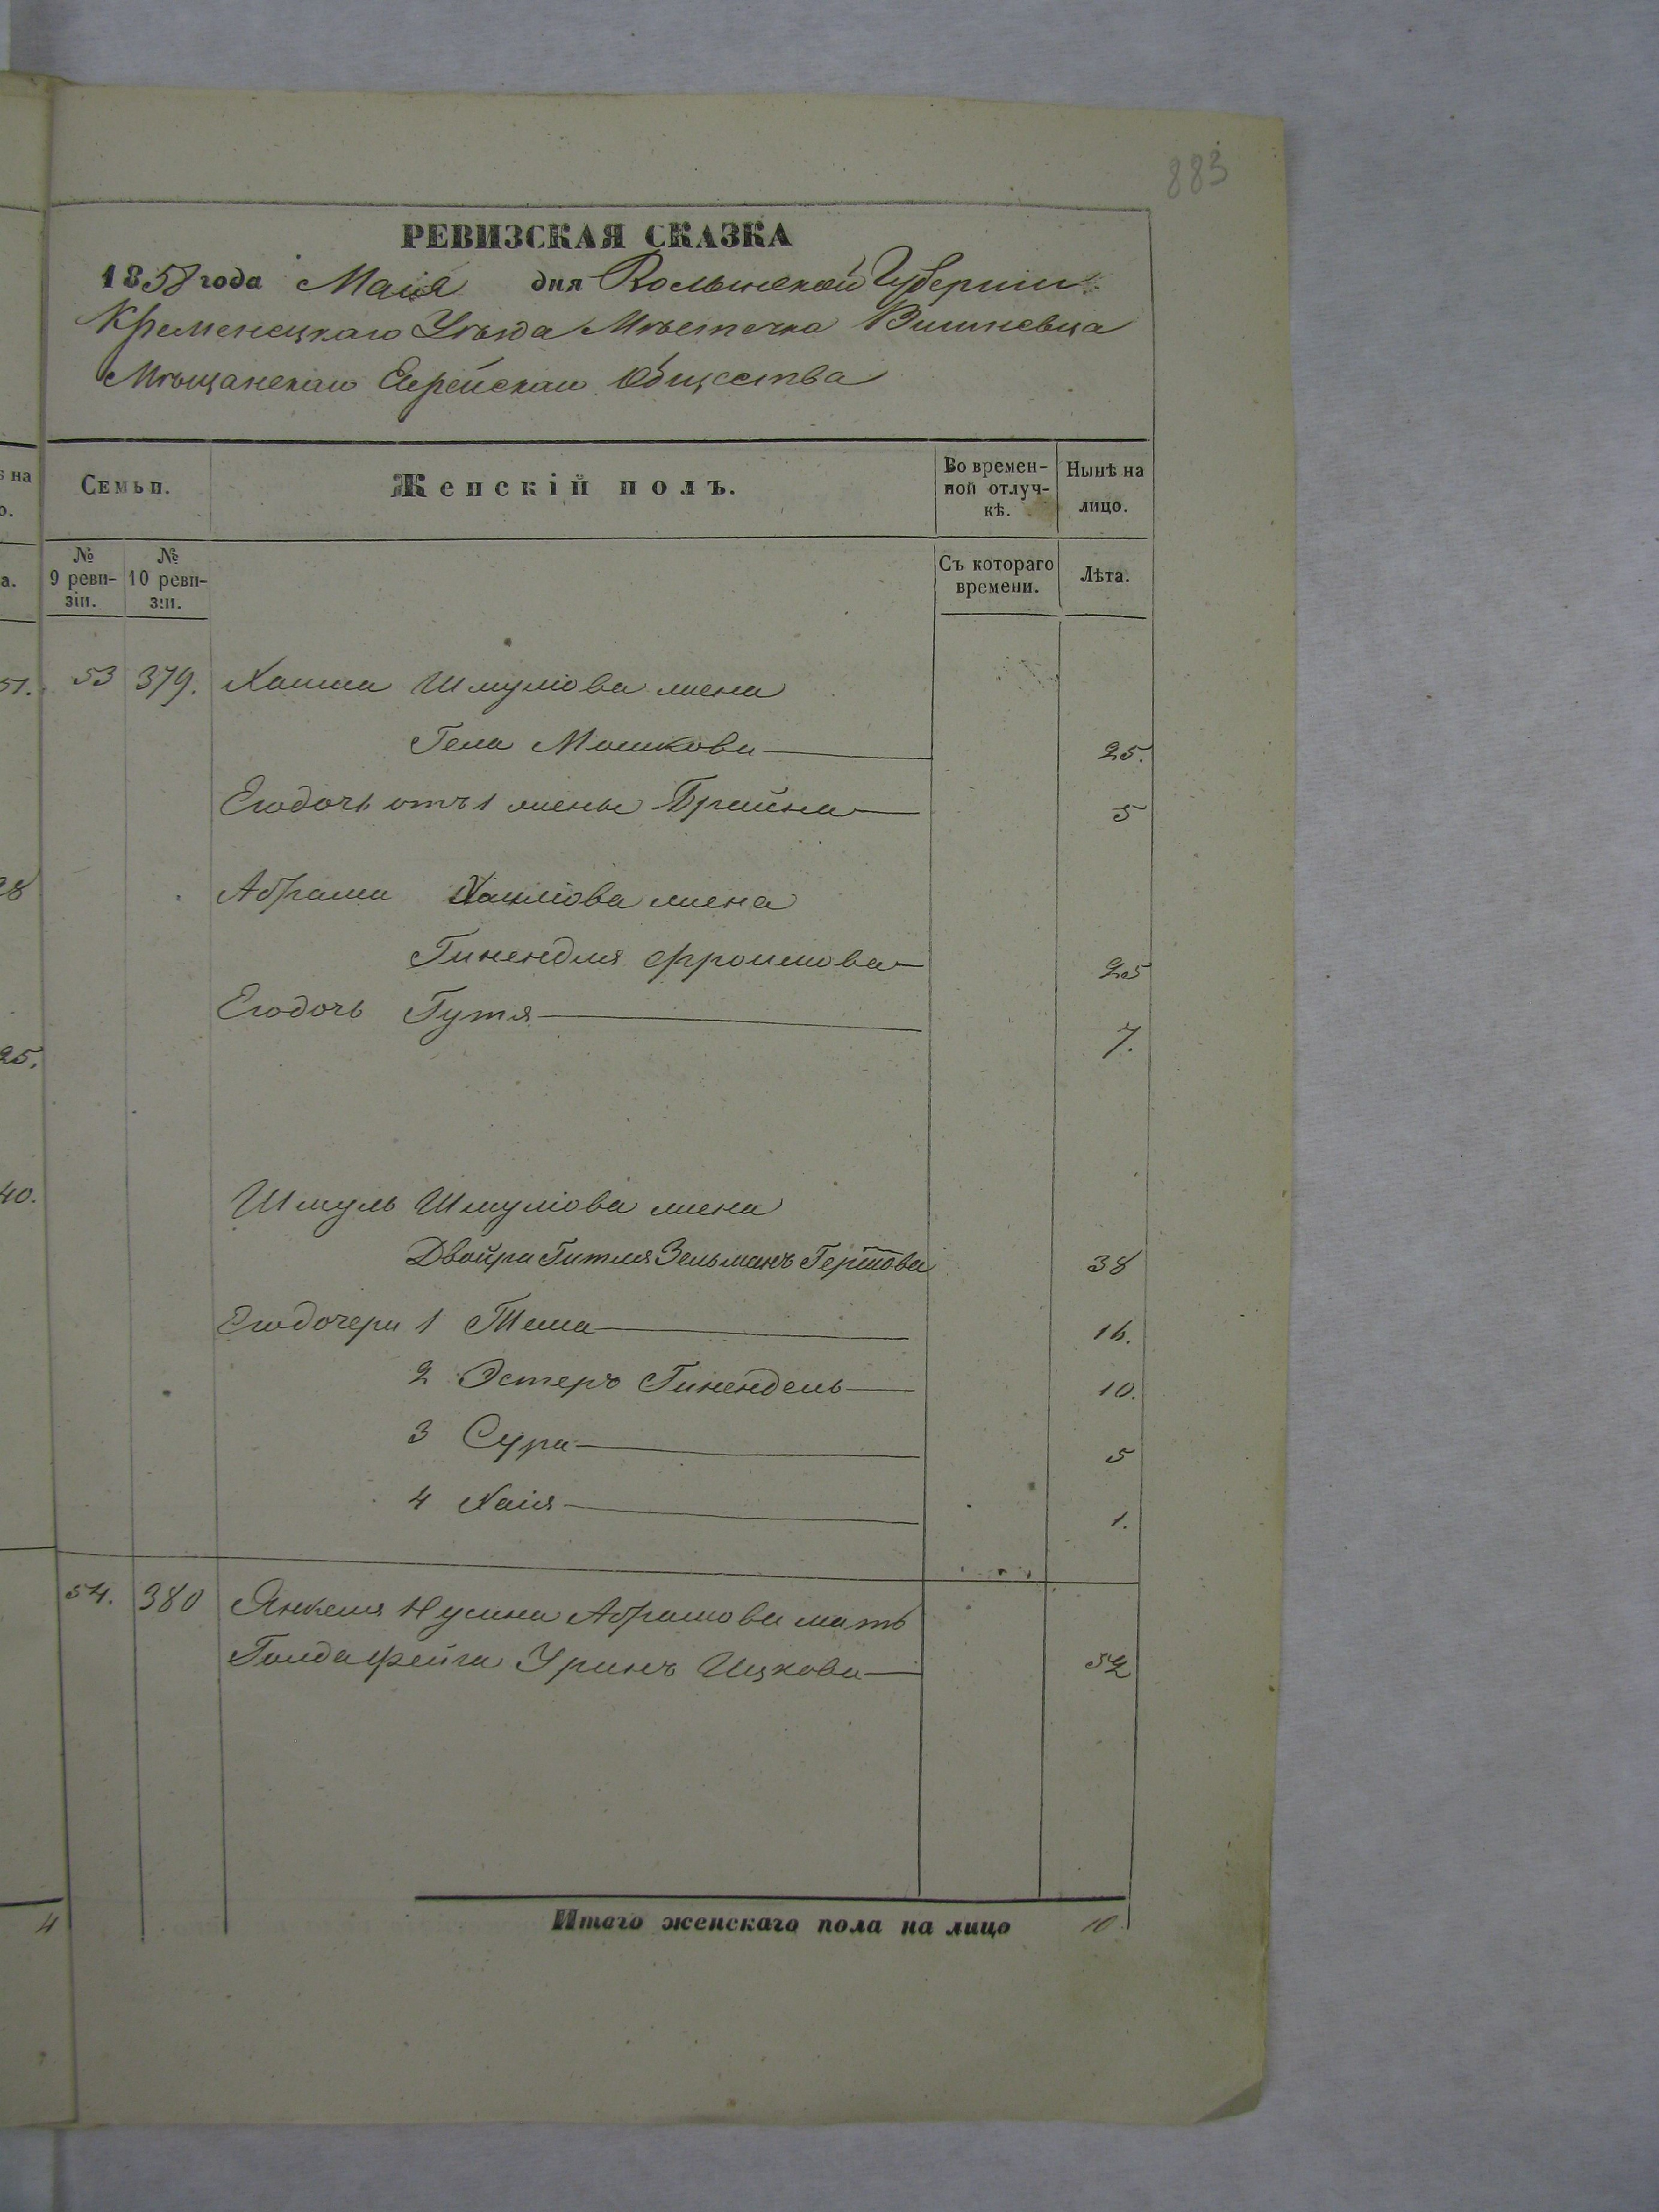 883
РЕВИЗСКАЯ СКАЗКА
1858 года Маія дня Волынской Губерніи
Кременецкаго Уѣзда Мѣстечка Вишневца
Мѣщанскаго Еврейскаго Общества
ѣ на
о.
Семьи.
Женскій полъ.
Во времен-
ной отлуч-
кѣ.
Нынѣ на
лицо.
а.
№
9 реви-
зіи.
№
10 реви-
зіи.
Съ котораго
времени.
Лѣта.
51. 53 379. Хаима Шмулiова жена
Гела Мошкова 25.
Его дочь отъ 1 жены Брайна 5
28 Абрама Хаимова жена
Гинендля Фроимова 25
Его дочь Гутя 7.
25.
40. Шмуль Шмулiова жена
Двойра Гитля Зельманъ Гершова 38
Его дочери 1 Тема 16.
2 Эстеръ Гинендель 10.
3 Сура 5
4 Хаія 1.
54. 380 Янкеля Нусина Абрамова мать
Голда Фейга Уринъ Ицкова 52
4 Итого женскаго пола на лицо 10